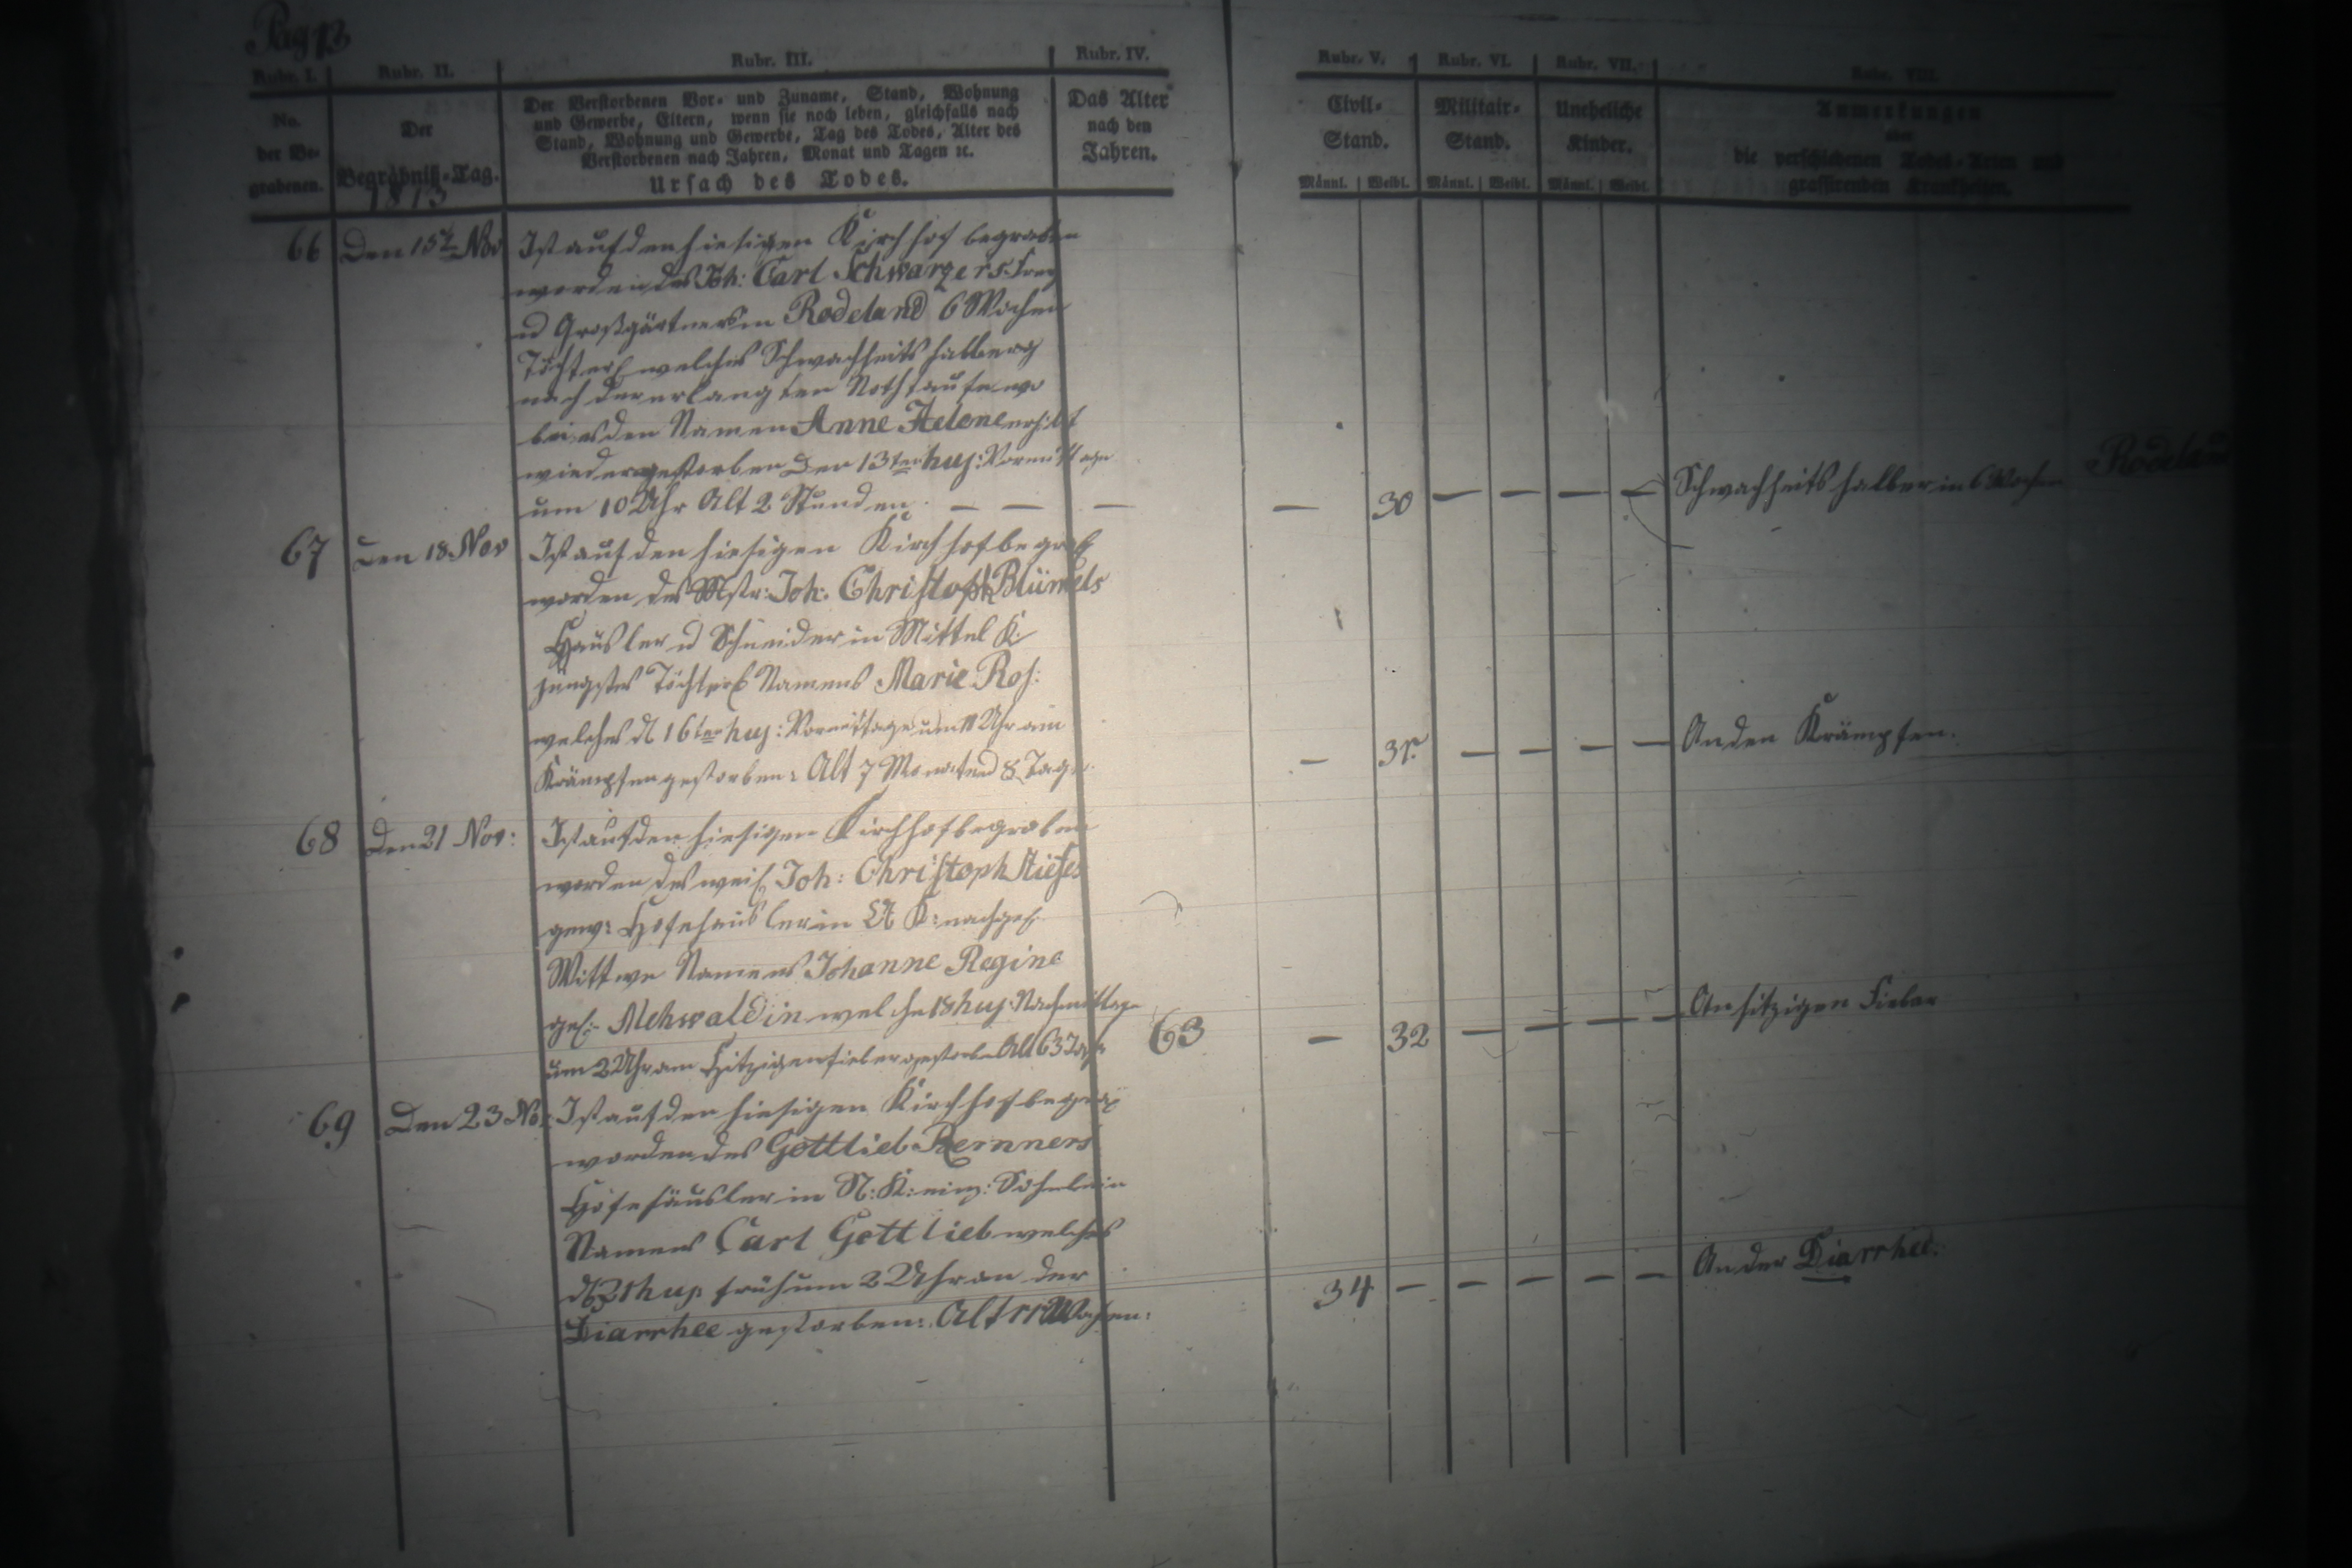 Pag 13
Rubr. I. Rubr. II. Rubr. III. Rubr. IV. Rubr. V. Rubr. VI. Rubr. VII. Rubr. VIII.
No. der Be- grabenen.
Der Begräbniß-Tag.
1813
Der Verstorbenen Vor- und Zuname, Stand, Wohnung
und Gewerbe, Eltern, wenn sie noch leben, gleichfalls nach
Stand, Wohnung und Gewerbe, Tag des Todes, Alter des
Verstorbenen nach Jahren, Monat und Tagen ꝛc.
Ursach des Todes.
Das Alter
nach den
Jahren.
Civil-
Stand.
Männl. Weibl.
Militair-
Stand.
Männl. Weibl.
Uneheliche
Kinder.
Männl. Weibl.
Anmerkungen
über
die verschiedenen Todes-Arten und
grassirenden Krankheiten.
66 Den 15t Nov Ist auf den hiesigen Kirchhof begraben
worden des Joh: Carl Schwarzers Frey
u Großgärtners in Rodeland 6 Wochen
Töchterl welches Schwachheits halber
nach der erlangten Nothtaufe wo
bei es den Namen Anne Helene erhilt
wieder gestorben Den 13ten huj: Vormittage
um 10 Uhr Alt 2 Stunden. — — — — 30 — — — — Schwachheits halber in 6 Wochen Rodeland
67 Den 18 Nov Ist auf den hiesigen Kirchhof begrab
worden des Mstr: Joh: Christoph Blümels
Häusler u Schneider in Mittel K:
jüngstes Töchterl Namens Marie Ros:
welches d 16ten huj: Vormittage um 11 Uhr am
Krämpfen gestorben: Alt 7 Monat und 8 Tage. — 31. — — — — An den Krämpfen.
68 Den 21 Nov: Ist auf den hiesigen Kirchhof begraben
worden des weil Joh: Christoph Stiefes
gew: Hofehäusler in K: nachgel.
Wittwe Namens Johanne Regine
geb:- Mehwaldin welche 18 huj: Nachmittage
um 2 Uhr am Hitzigenfieber gestorben Alt 63 Jahr 63 — 32 — — — — An hitzigen Fieber
69 Den 23 Nov: Ist auf den hiesigen Kirchhof begra
worden des Gottlieb Rernners
Hofehäusler in N: K: einz: Sohnlein
Namens Carl Gottlieb welches
d 21 huj: früh um 2 Uhr an der
Diarrhee gestorben: Alt 11 Wochen: 34 — — — — — An der Diarrhee.